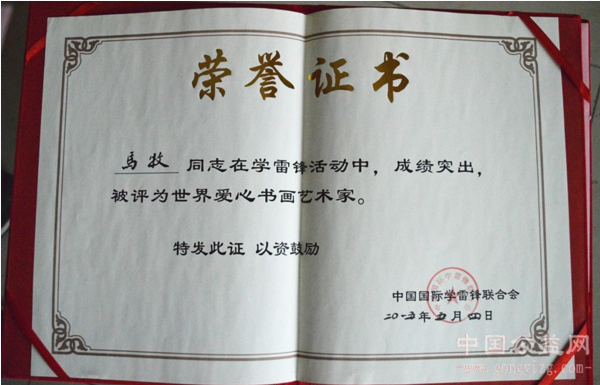 荣誉证书
马牧 同志在学雷锋活动中，成绩突出，
被评为世界爱心书画艺术家。
特发此证 以资鼓励
中国国际学雷锋联合会
二〇一五年五月四日
中国公益网